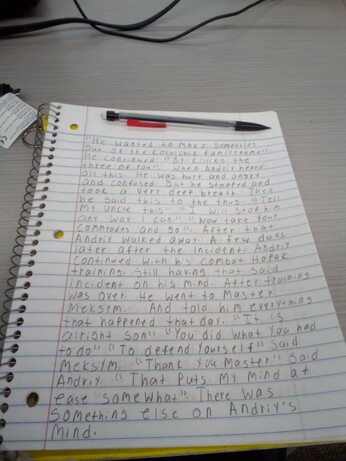 "He wanted to make something
out of the Kovalchuk family name"
He continued. "By killing the
three of you". When Andriy heard
all this. He was hurt and angry
and confused. But he stopped and
took a very deep breath. Then
he said this to the thug "Tell
my uncle this" "I will stop him
any way I can" "Now take your
comrades and go". After that
Andriy walked away. A few days
later after the incident. Andriy
continued with his Combat Hopak
training. Still having that said
incident on his mind. After training
was over. He went to Master
Meksym. And told him everything
that happened that day. "It is
alright son" "You did what you had
to do" "To defend yourself" said
Meksym. "Thank you Master" said
Andriy. "That puts my mind at
ease "somewhat". There was
something else on Andriy's
mind.